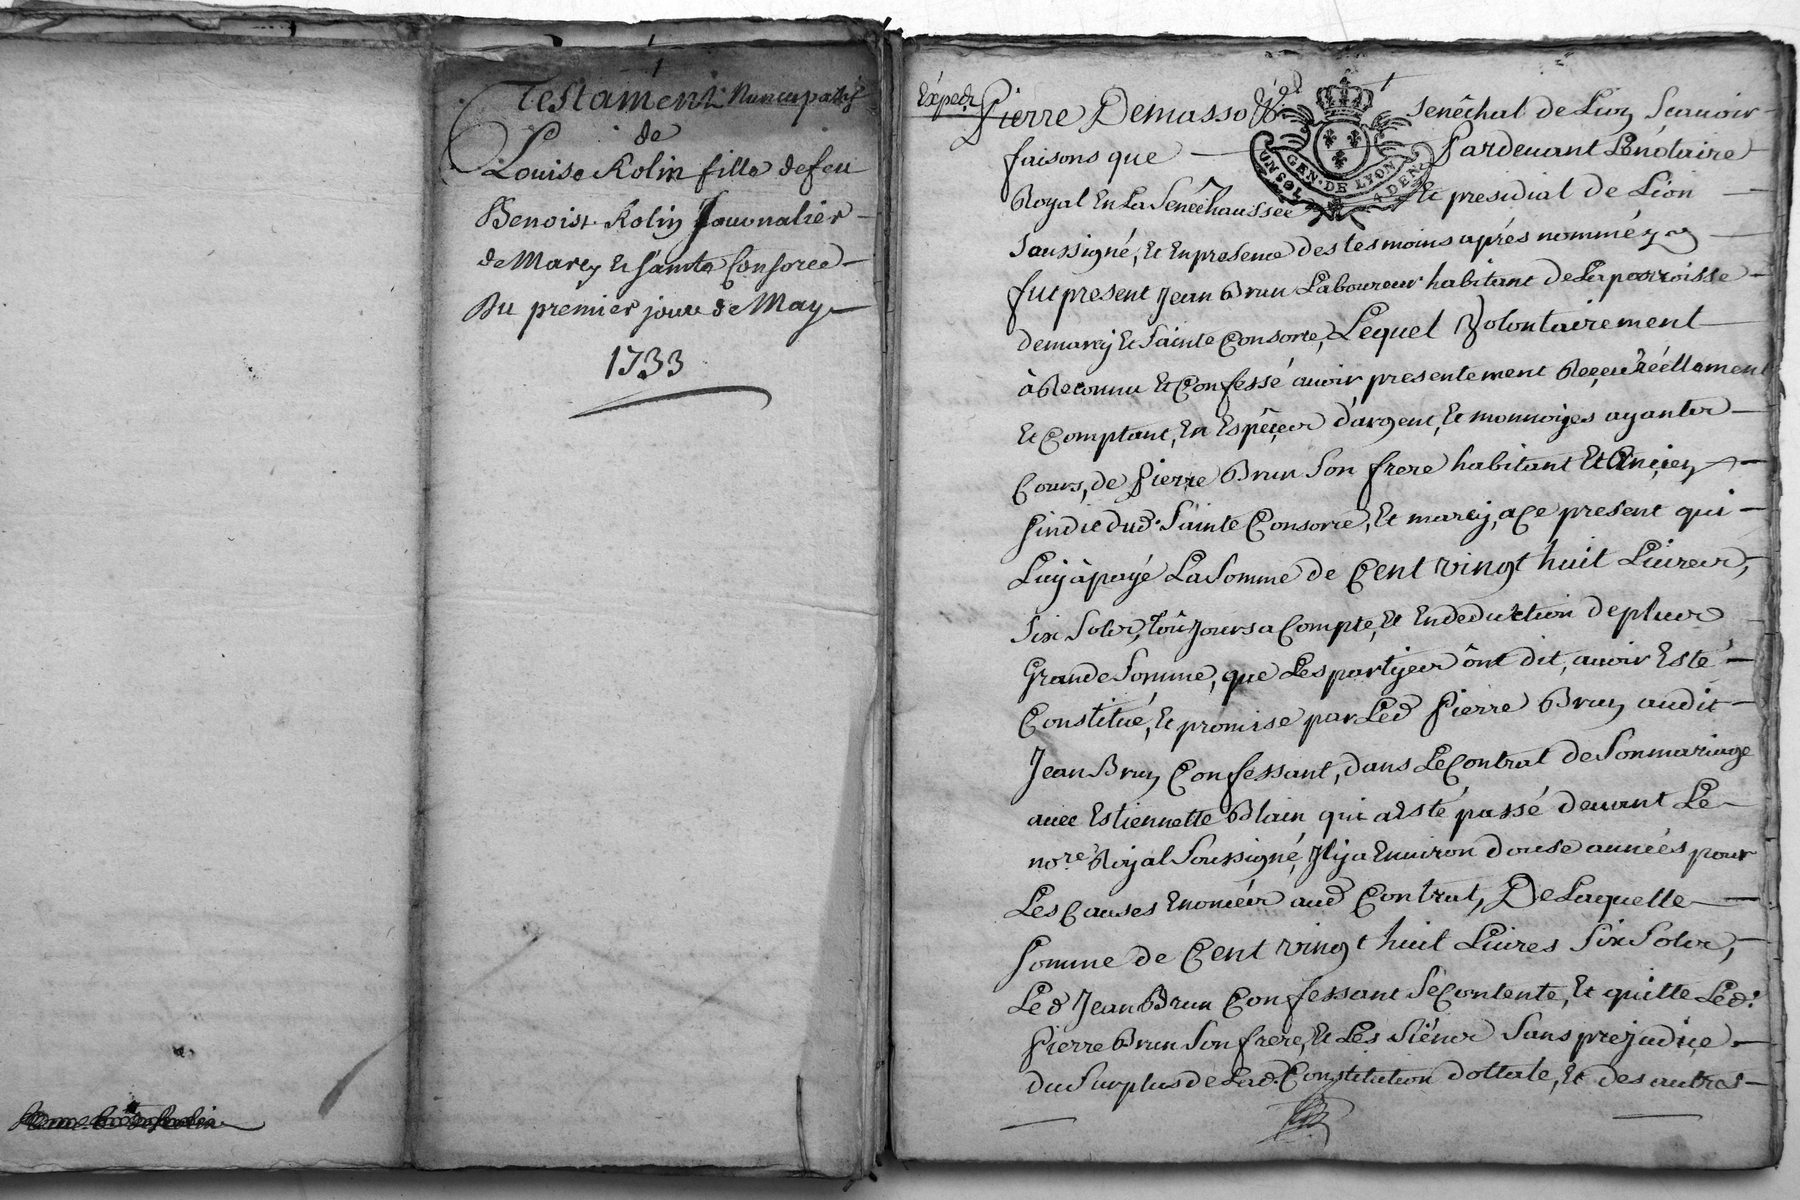 Testament Nuncupatif
de
Louise Rolin fille defeu
Benoist Rolin Journalier
de Marcy et Sainte Consorce
Du premier jour de May
1733
Expedz
Pierre Demasso Senêchal de Lion Scauoir
faisons que Pardeuant Le nôtaire
Royal En La Senêchaussée Et presidial de Lion
Soussigné, Et En presence des tesmoins aprés nomméz
fut present Jean Brun Laboureur habitant de La parroisse
de marcy Et Sainte Consorce, Lequel Volontairement
à Reconnu Et Confessé auoir presentement Reçeu réellement
Et Comptant, En Espêçes d'argent, Et monnoyes ayantes
Cours, de Pierre Brun Son frere habitant Et Ançien
Sindic dud. Sainte Consorce, Et marcy, a Ce present qui
Luy à payé La Somme de Cent vingt huit Liures,
Six Sols, toûjours a Compte, Et En deduction de plus
Grande Somme, que Les partyes ônt dit, auoir Esté
Constitué, Et promise par Led Pierre Brun audit
Jean Brun Confessant, dans Le Contrat de Son mariage
auec Estiennette Blain qui a Esté passé deuant Le
nore Royal Soussigné, Il y a Enuiron douse années pour
Les Causes Enoncées aud Contrat, De Laquelle
Somme de Cent vingt huit Liures Six Sols,
Led Jean Brun Confessant Se Contente, Et quitte Led.
Pierre Brun Son frere, Et Les Siéns Sans prejudiçe
du Surplus de Lad. Constitution dottale, Et des autres
GEN. DE LYON